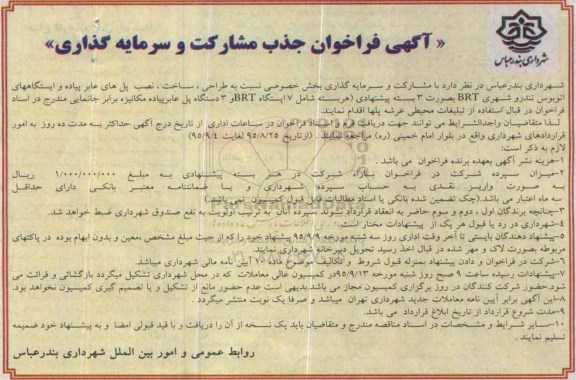 « آگهی فراخوان جذب مشارکت و سرمایه گذاری»
شهرداری بندرعباس
شهرداری بندرعباس در نظر دارد با مشارکت و سرمایه گذاری بخش خصوصی نسبت به طراحی ، ساخت ، نصب پل های عابر پیاده و ایستگاههای
اتوبوس تندرو شهری BRT بصورت ۳ بسته پیشنهادی (هربسته شامل ۷ ایستگاه BRTو ۳ دستگاه پل عابرپیاده مکانیزه برابر جانمایی مندرج در اسناد
فراخوان در قبال استفاده از تبلیغات محیطی عرشه پلها اقدام نمایند .
لذا متقاضیان واجدالشرایط می توانند جهت دریافت فرم و اسناد فراخوان در ساعات اداری از تاریخ درج آگهی حداکثر به مدت ده روز به امور
قراردادهای شهرداری واقع در بلوار امام خمینی (ره) مراجعه نمایند . (ازتاریخ ۹۵/۸/۲۵ لغایت ۹۵/۹/۴)
لازم به ذکر است:
۱-هزینه نشر آگهی بعهده برنده فراخوان می باشد .
۲-میزان سپرده شرکت در فراخوان بازاء شرکت در هر بسته پیشنهادی به مبلغ ۱/۰۰۰/۰۰۰/۰۰۰ ریال
به صورت واریز نقدی به حساب سپرده شهرداری و یا ضمانتنامه معتبر بانکی دارای حداقل
سه ماه اعتبار می باشد.(چک تضمین شده بانکی یا اسناد مطالبات قابل قبول کمیسیون نمی باشد)
۳-چنانچه برندگان اول ، دوم و سوم حاضر به انعقاد قرارداد نشوند سپرده آنان به ترتیب اولویت به نفع صندوق شهرداری ضبط خواهد شد.
۴-شهرداری در رد یا قبول هر یک از پیشنهادات مختار است .
۵-پیشنهاد دهندگان بایستی تا آخر وقت اداری روز سه شنبه مورخه ۹۵/۹/۹ پیشنهاد خود را که از حیث مبلغ مشخص ،معین و بدون ابهام بوده در پاکتهای
مربوطه بصورت لاک و مهر شده در قبال اخذ رسید تحویل دبیرخانه شهرداری نمایند .
۶-شرکت در فراخوان و دادن پیشنهاد بمنزله قبول شروط و تکالیف موضوع ماده ۱۰ آیین نامه مالی شهرداری میباشد.
۷-پیشنهادات رسیده ساعت ۹ صبح روز شنبه مورخه ۹۵/۹/۱۳در کمیسیون عالی معاملات که در محل شهرداری تشکیل میگردد بازگشائی و قرائت می
شود.حضور شرکت کنندگان در روز برگزاری کمیسیون مجاز می باشد.بدیهی است عدم حضور مانع از تشکیل و یا تصمیم گیری کمیسیون نخواهد بود.
۸-این آگهی برابر آیین نامه معاملات جدید شهرداری تهران میباشد و صرفا یک نوبت منتشر میگردد .
۹-مدت شروع قرارداد از تاریخ ابلاغ قرارداد می باشد.
۱۰-سایر شرایط و مشخصات در اسناد مناقصه مندرج و متقاضیان باید یک نسخه از آن را دریافت و با قید قبولی امضا و به پیشنهاد خود ضمیمه
تسلیم نمایند .
روابط عمومی و امور بین الملل شهرداری بندرعباس